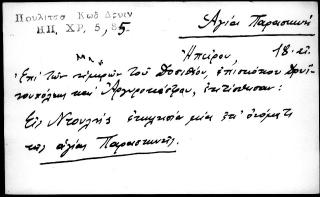 Πουλίτσα Κωδ Δρυιν
ΗΠ. ΧΡ, 5, 85
Ἁγία Παρασκευή
Ἠπείρου, 18 αἰ.
Ἐπί τῶν ἡμερῶν τοῦ Δοσιθέου, ἐπισκόπου Δρυϊ-
νουπόλεως καί Ἀργυροκάστρου, ἐκτίσθησαν:
Εἰς Ντουλης ἐκκλησία μία ἐπ' ὀνόματι
τῆς ἁγίας Παρασκευῆς.